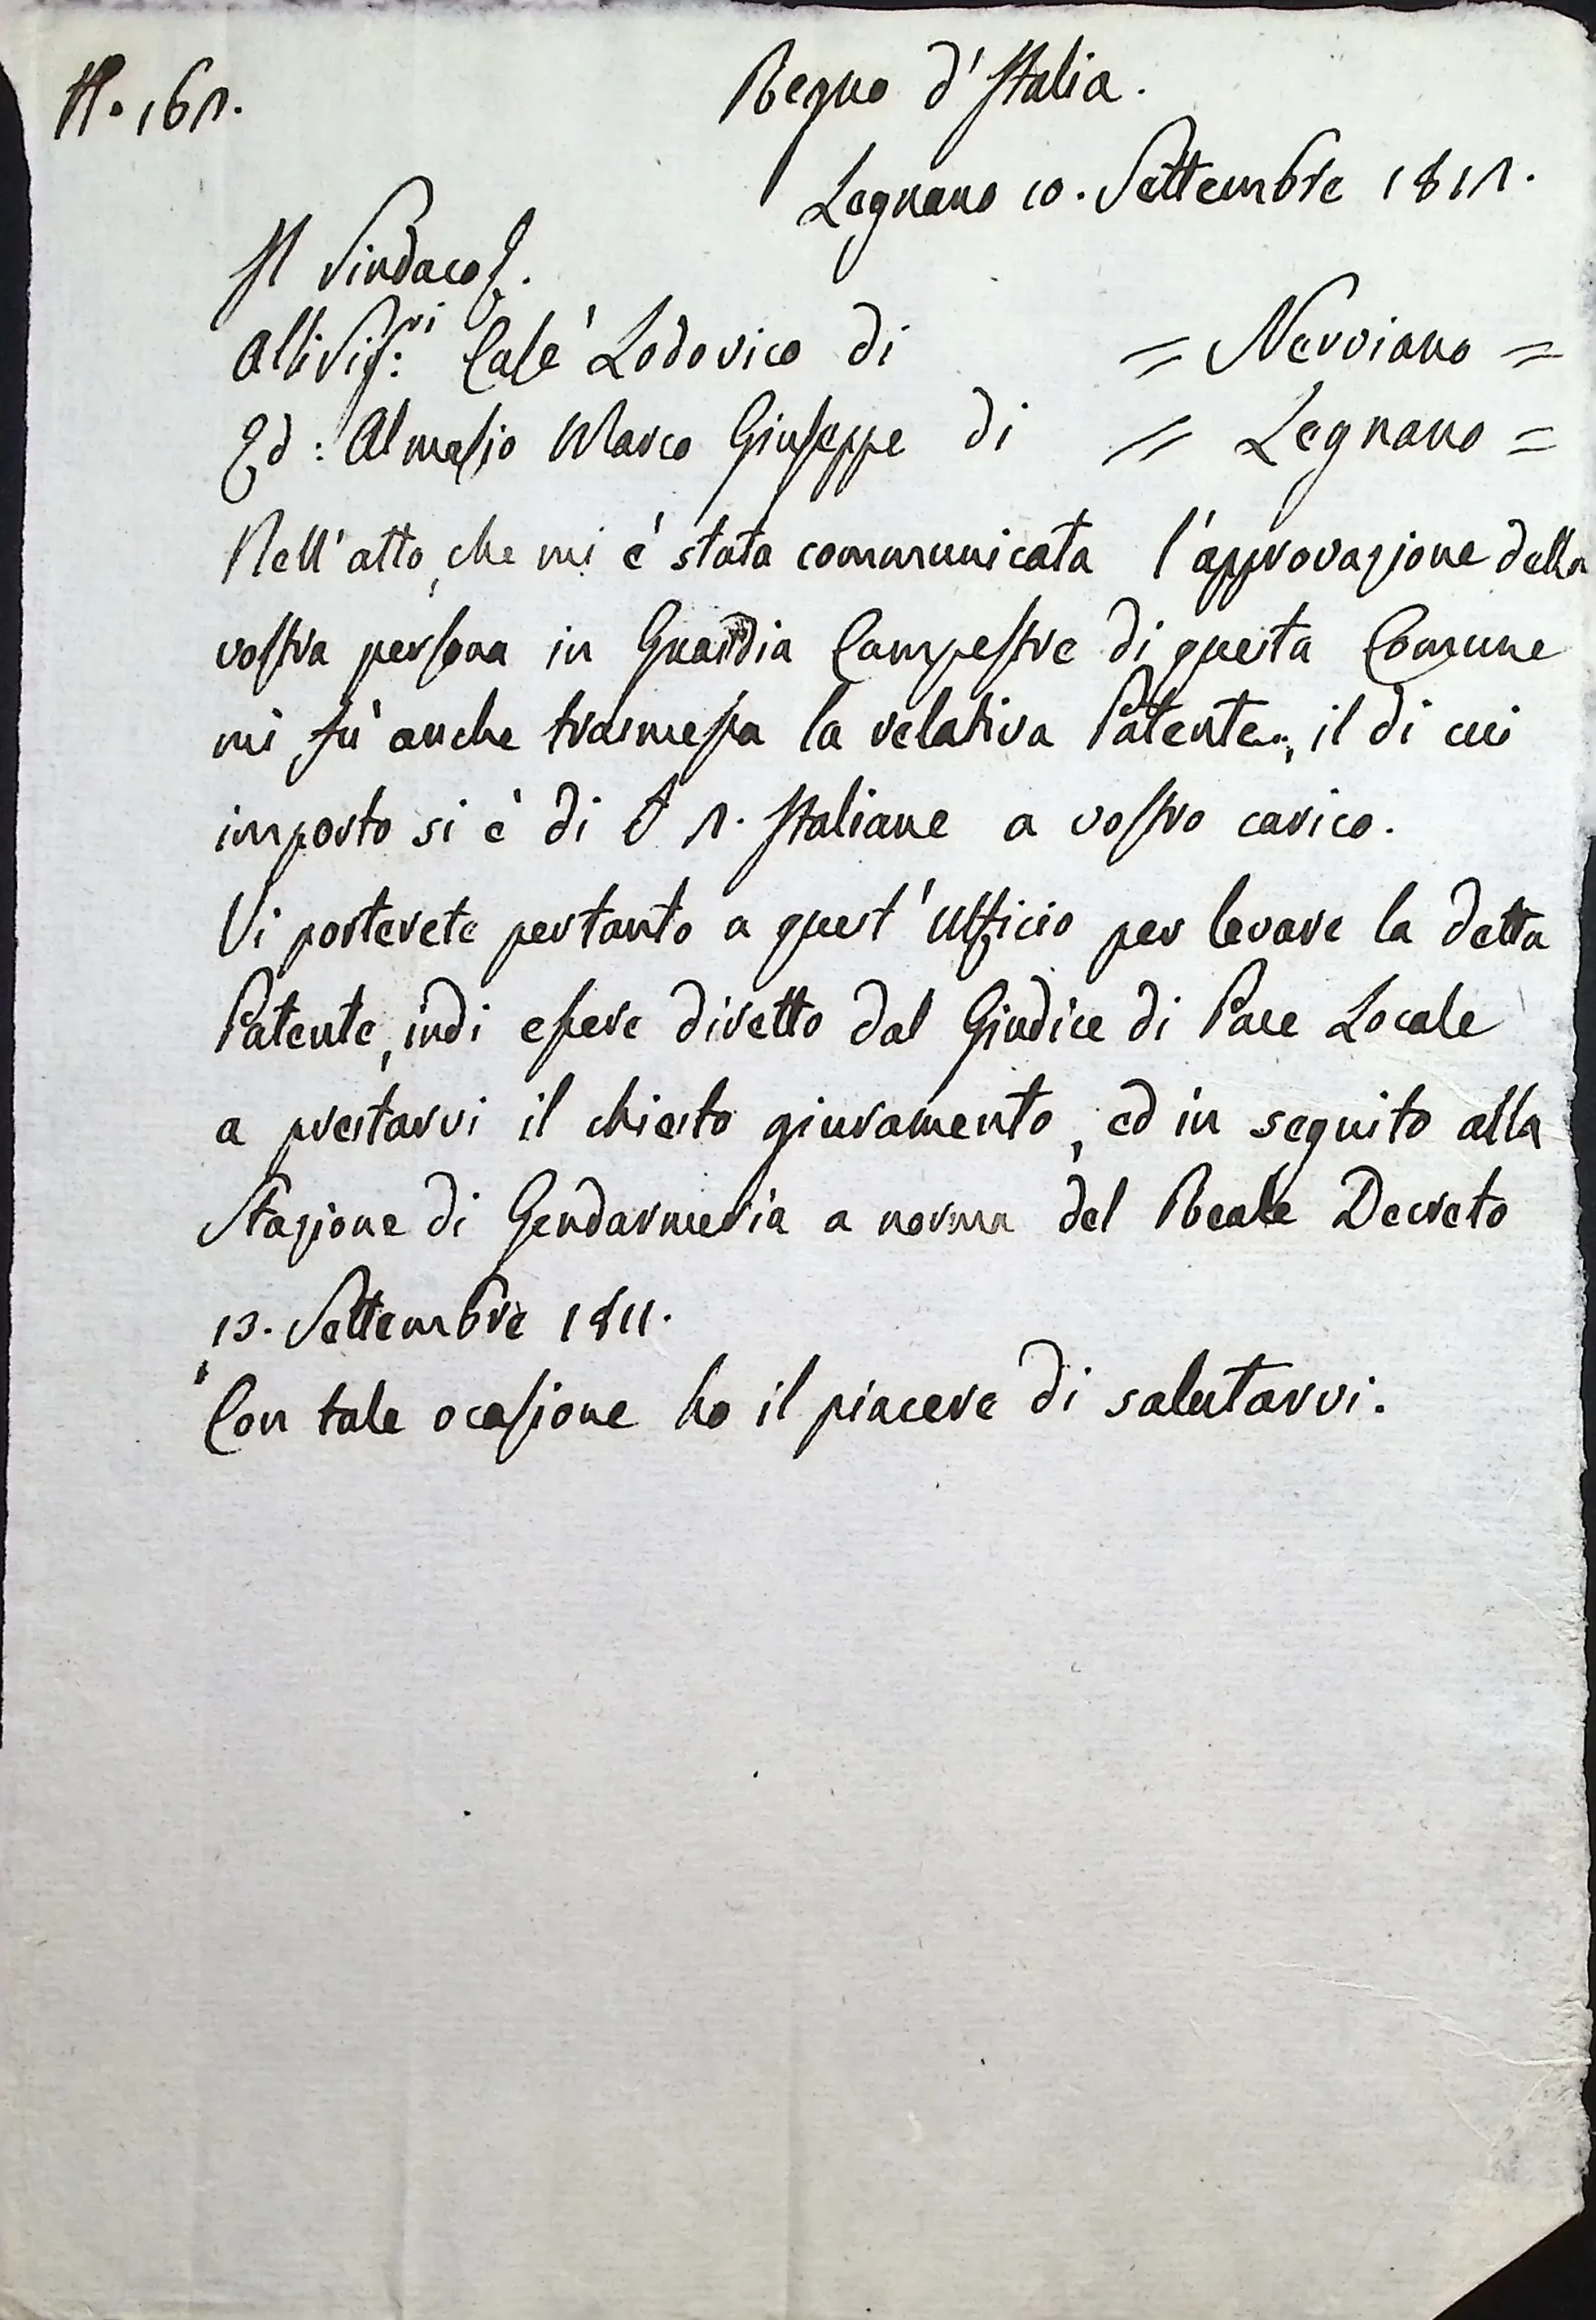 N. 162.
Regno d'Italia.
Legnano 10. Settembre 1812.
Il Sindaco
Alli Sig:ri Calè Lodovico di = Nerviano =
Ed: Almasio Marco Giuseppe di = Legnano =
Nell'atto, che mi è stata communicata l'approvazione della
vostra persona in Guardia Campestre di questa Comune
mi fù anche trasmessa la relativa Patente, il di cui
importo si è di £ 2. Italiane a vostro carico.
Vi porterete pertanto a quest'Ufficio per levare la detta
Patente, indi essere diretto dal Giudice di Pace Locale
a prestarvi il chiesto giuramento, ed in seguito alla
Stazione di Gendarmeria a norma del Reale Decreto
13. Settembre 1811.
Con tale ocasione ho il piacere di salutarvi.